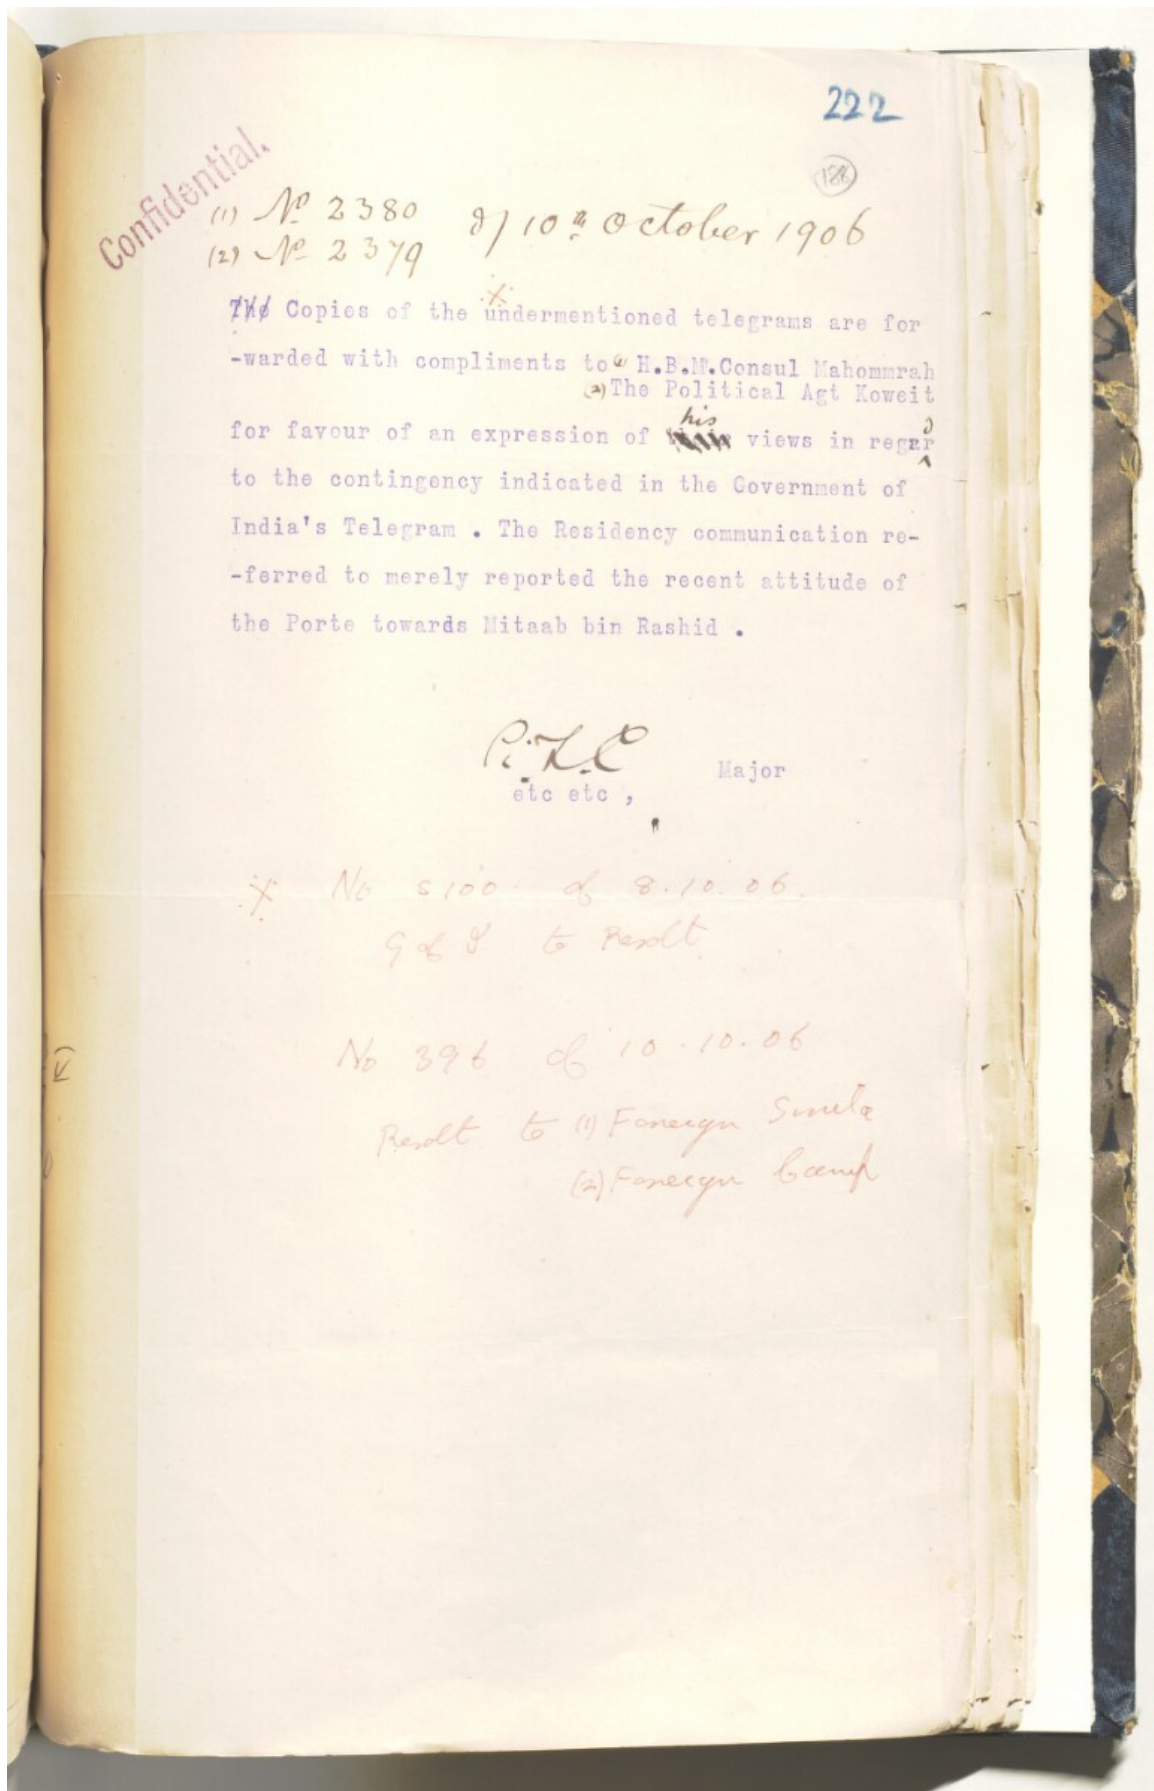 222
188
Confidential.
(1) No 2380 d/ 10th October 1906
(2) No 2379
The Copies of the undermentioned telegrams are for
-warded with compliments to (1) H.B.M.Consul Mahommrah
(2) The Political Agt Koweit
for favour of an expression of his views in regard
to the contingency indicated in the Government of
India's Telegram . The Residency communication re-
-ferred to merely reported the recent attitude of
the Porte towards Mitaab bin Rashid .
P.Z.C Major
etc etc ,
No S 100 of 8.10.06.
G of I to Resdt
No 396 of 10.10.06
Resdt to (1) Foreign Simla
(2) Foreign Camp